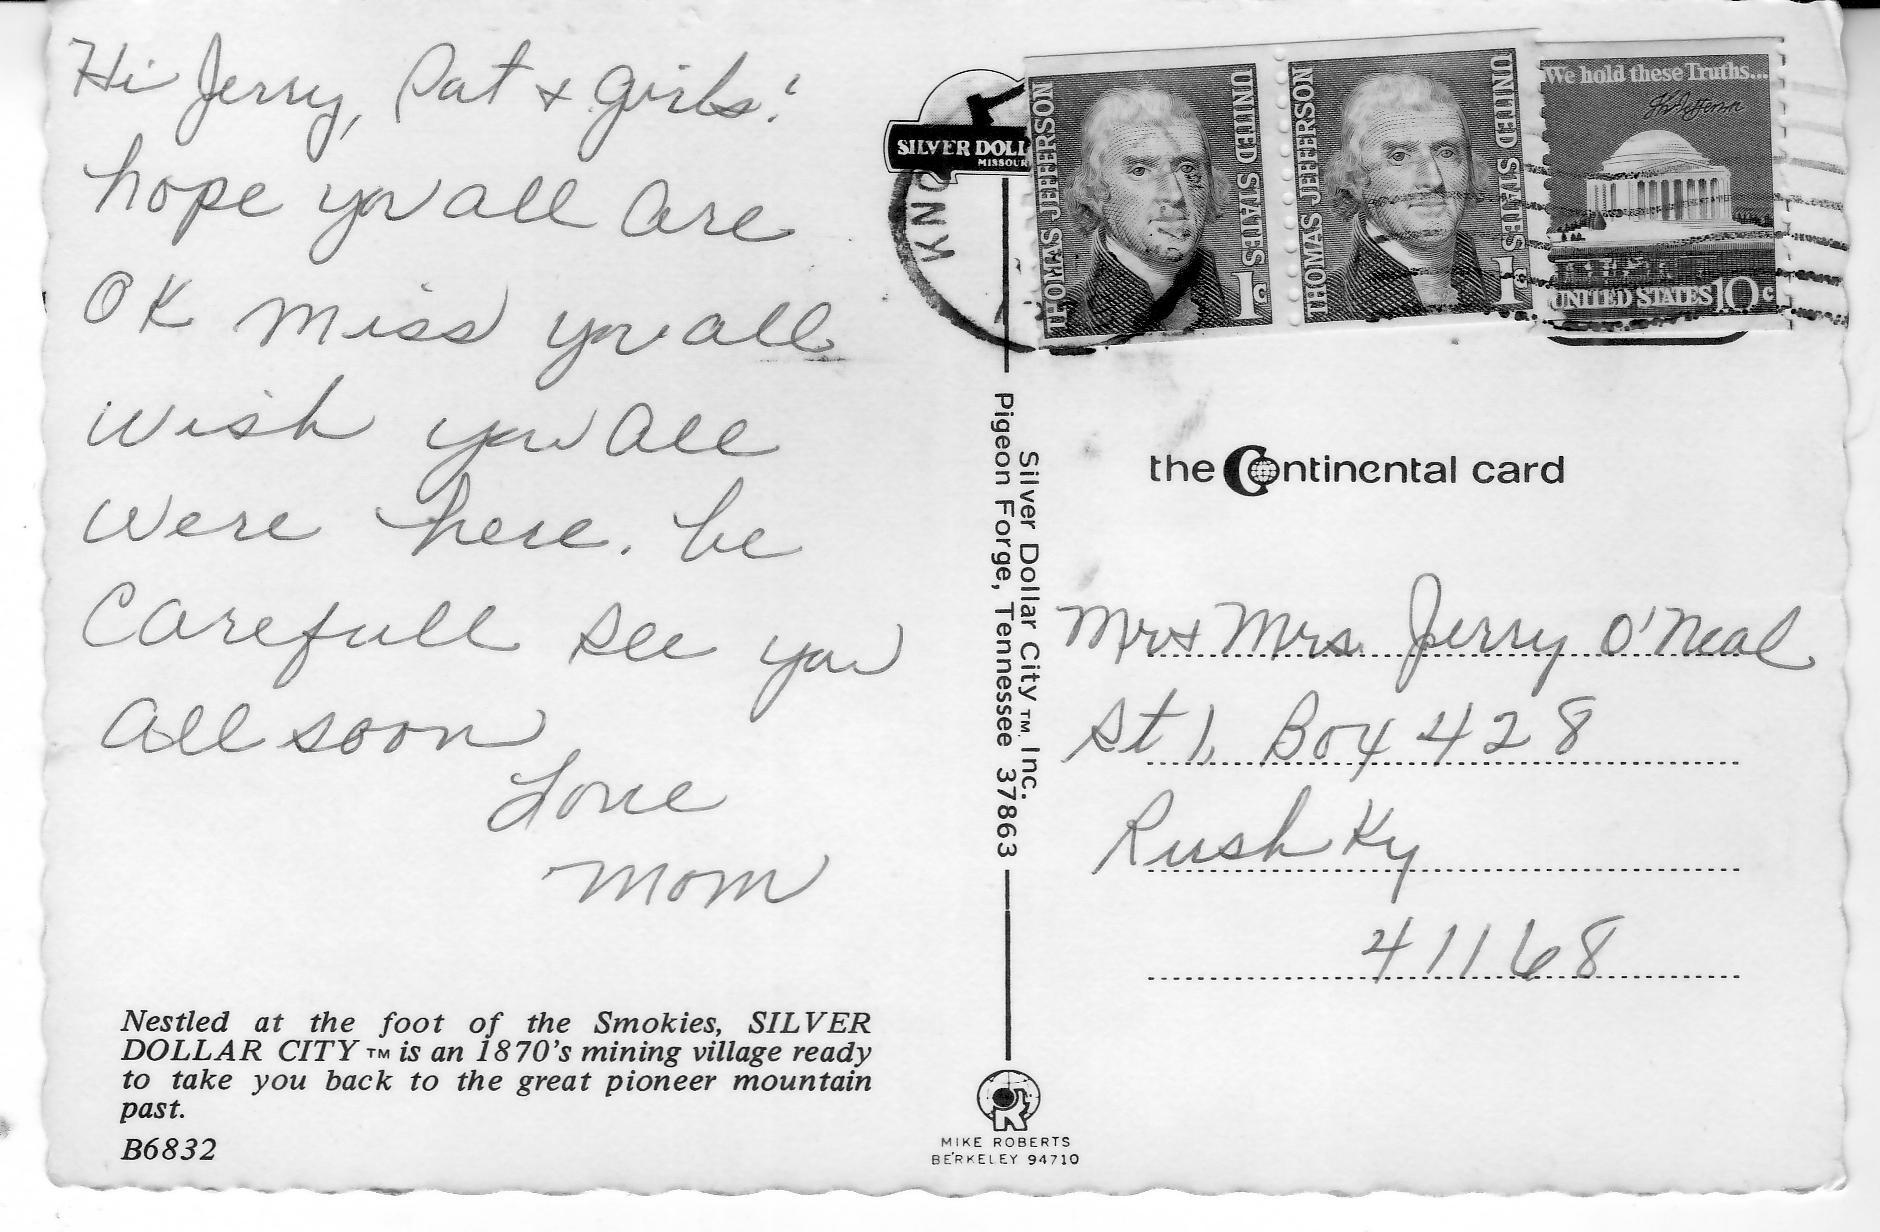 Hi Jerry, Pat + girls!
hope you all are
OK miss you all
wish you all
were here. be
Carefull see you
all soon
Love
Mom
Nestled at the foot of the Smokies, SILVER
DOLLAR CITY TM is an 1870's mining village ready
to take you back to the great pioneer mountain
past.
B6832
SILVER DOLL
MISSOUR
KNO
Silver Dollar City TM, Inc.
Pigeon Forge, Tennessee 37863
MIKE ROBERTS
BERKELEY 94710
THOMAS JEFFERSON
UNITED STATES
1c
THOMAS JEFFERSON
UNITED STATES
1c
We hold these Truths...
Th Jefferson
UNITED STATES 10c
the Continental card
Mr + Mrs. Jerry O'Neal
St 1, Box 428
Rush Ky
41168